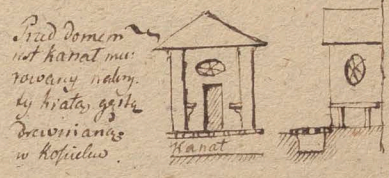 Przed domem
jest kanał mu-
rowany nakry-
ty kratą gęstą
drewnianą
w Kościele.
Kanał